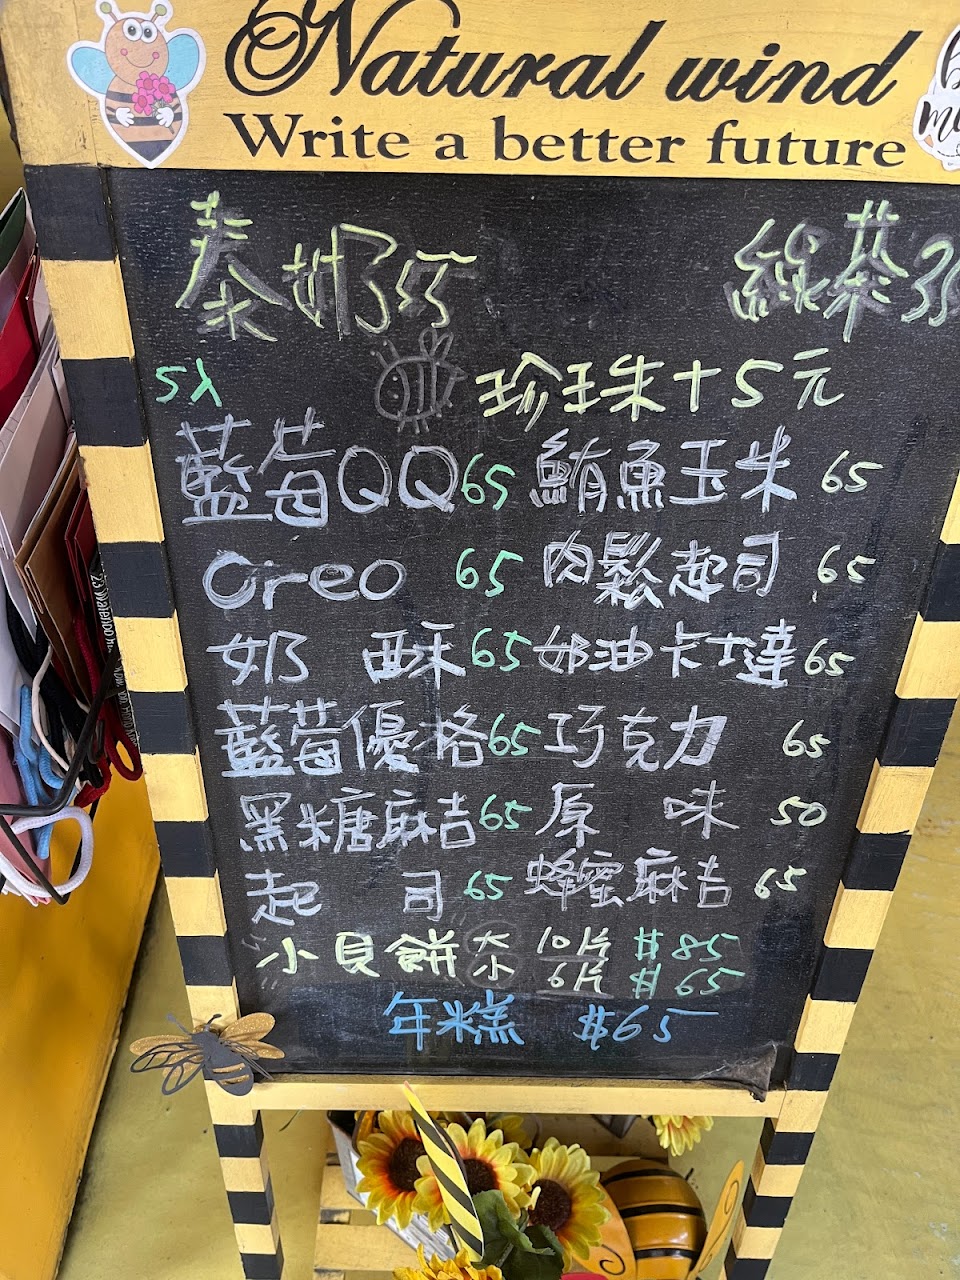 Natural wind
Write a better future
泰奶55 綠茶35
5入 珍珠+5元
藍莓QQ65 鮪魚玉米 65
Oreo 65 肉鬆起司 65
奶 酥65 奶油卡士達65
藍莓優格65 巧克力 65
黑糖麻吉65 原 味 50
起 司 65 蜂蜜麻吉 65
小貝餅 大 10片 $85
小 6片 $65
年糕 $65